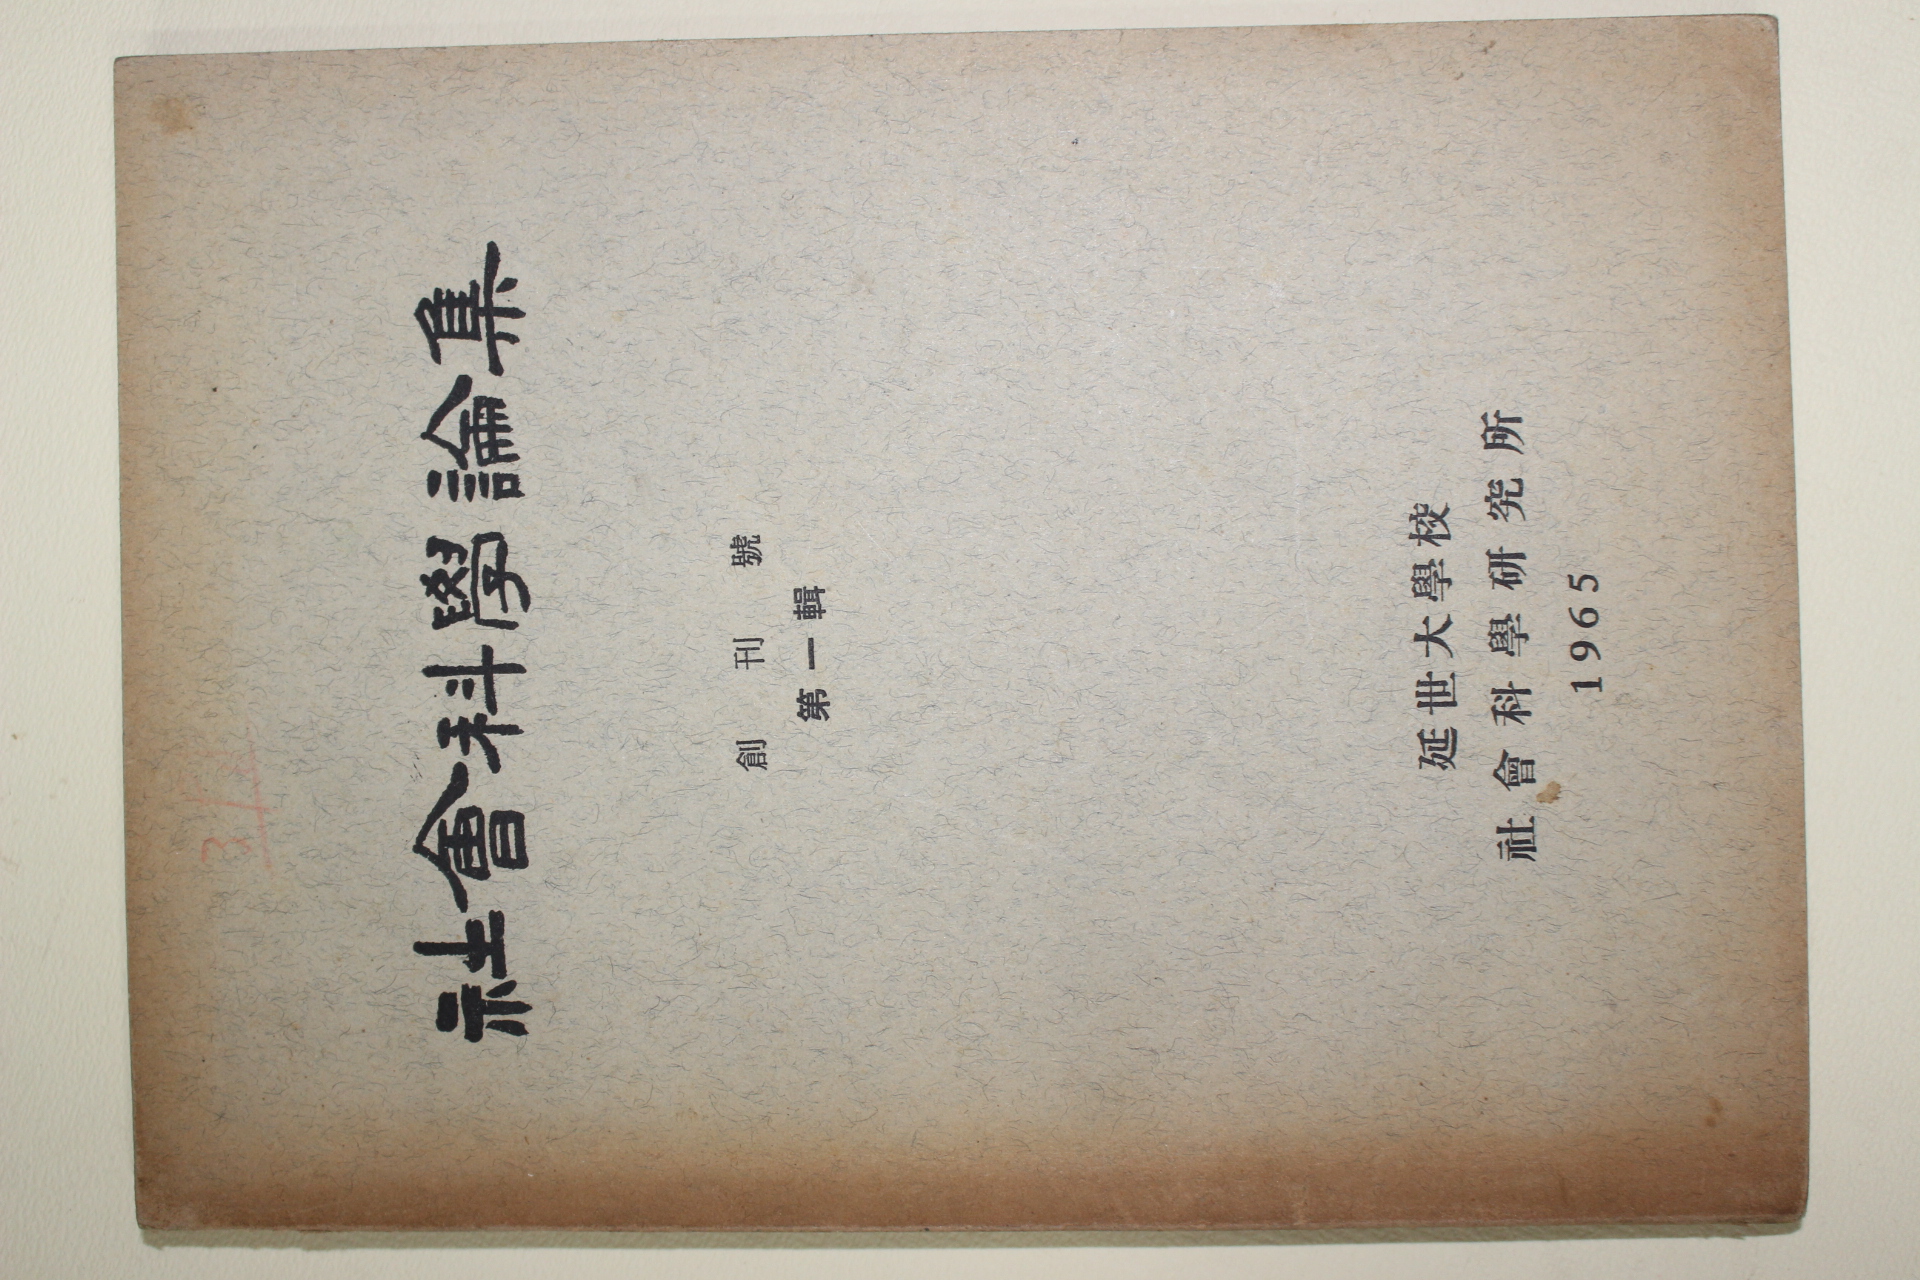 社會科學論集
創刊號
第一輯
延世大學校
社會科學研究所
1965